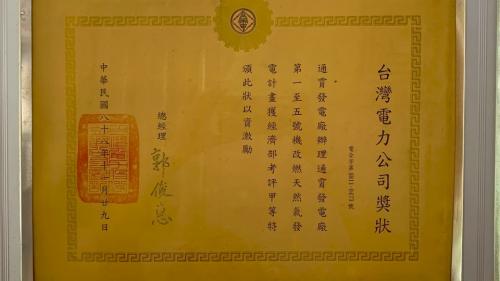 台灣電力公司獎狀
通霄發電廠辦理通霄發電廠
第一至五號機改燃天然氣發
電計畫獲經濟部考評甲等特
頒此狀以資激勵
總經理
郭俊惠
中華民國八十八年十一月廿九日